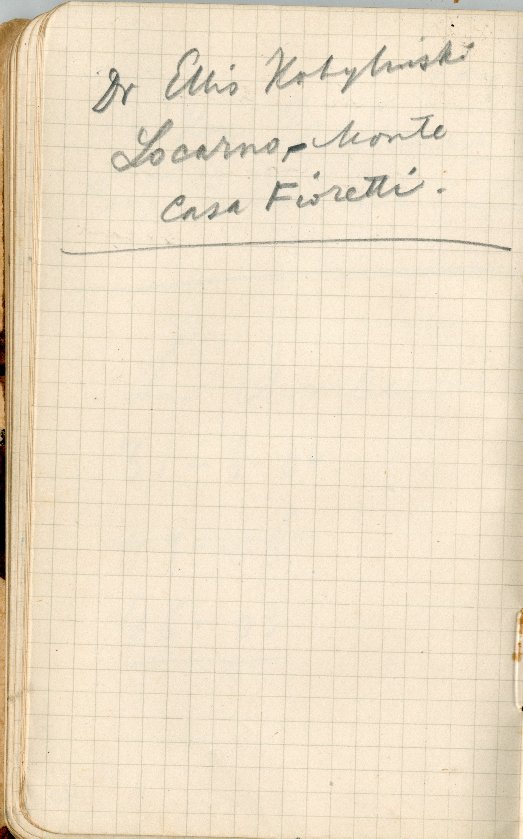 Dr Ellis Kobylinski
Locarno, - Monte
Casa Fioretti.